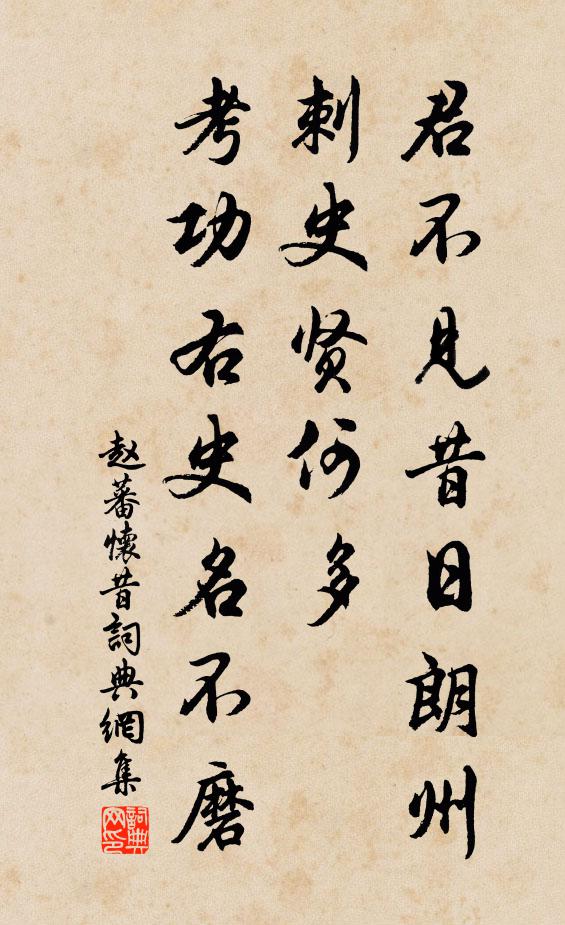 君不见昔日朗州
刺史贤何多
考功右史名不磨
赵蕃懷昔詞典網集
詞典网印